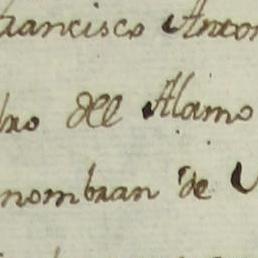 francisco Anton
bro del Alamo
nombran de V